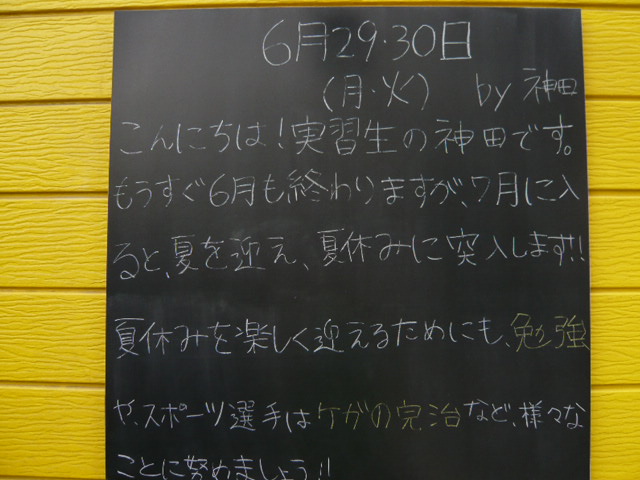 6月29・30日
(月・火) by 神田
こんにちは!実習生の神田です。
もうすぐ6月も終わりますが、7月に入
ると、夏を迎え、夏休みに突入します!!
夏休みを楽しく迎えるためにも、勉強
や、スポーツ選手はケガの完治など、様々な
ことに努めましょう!!